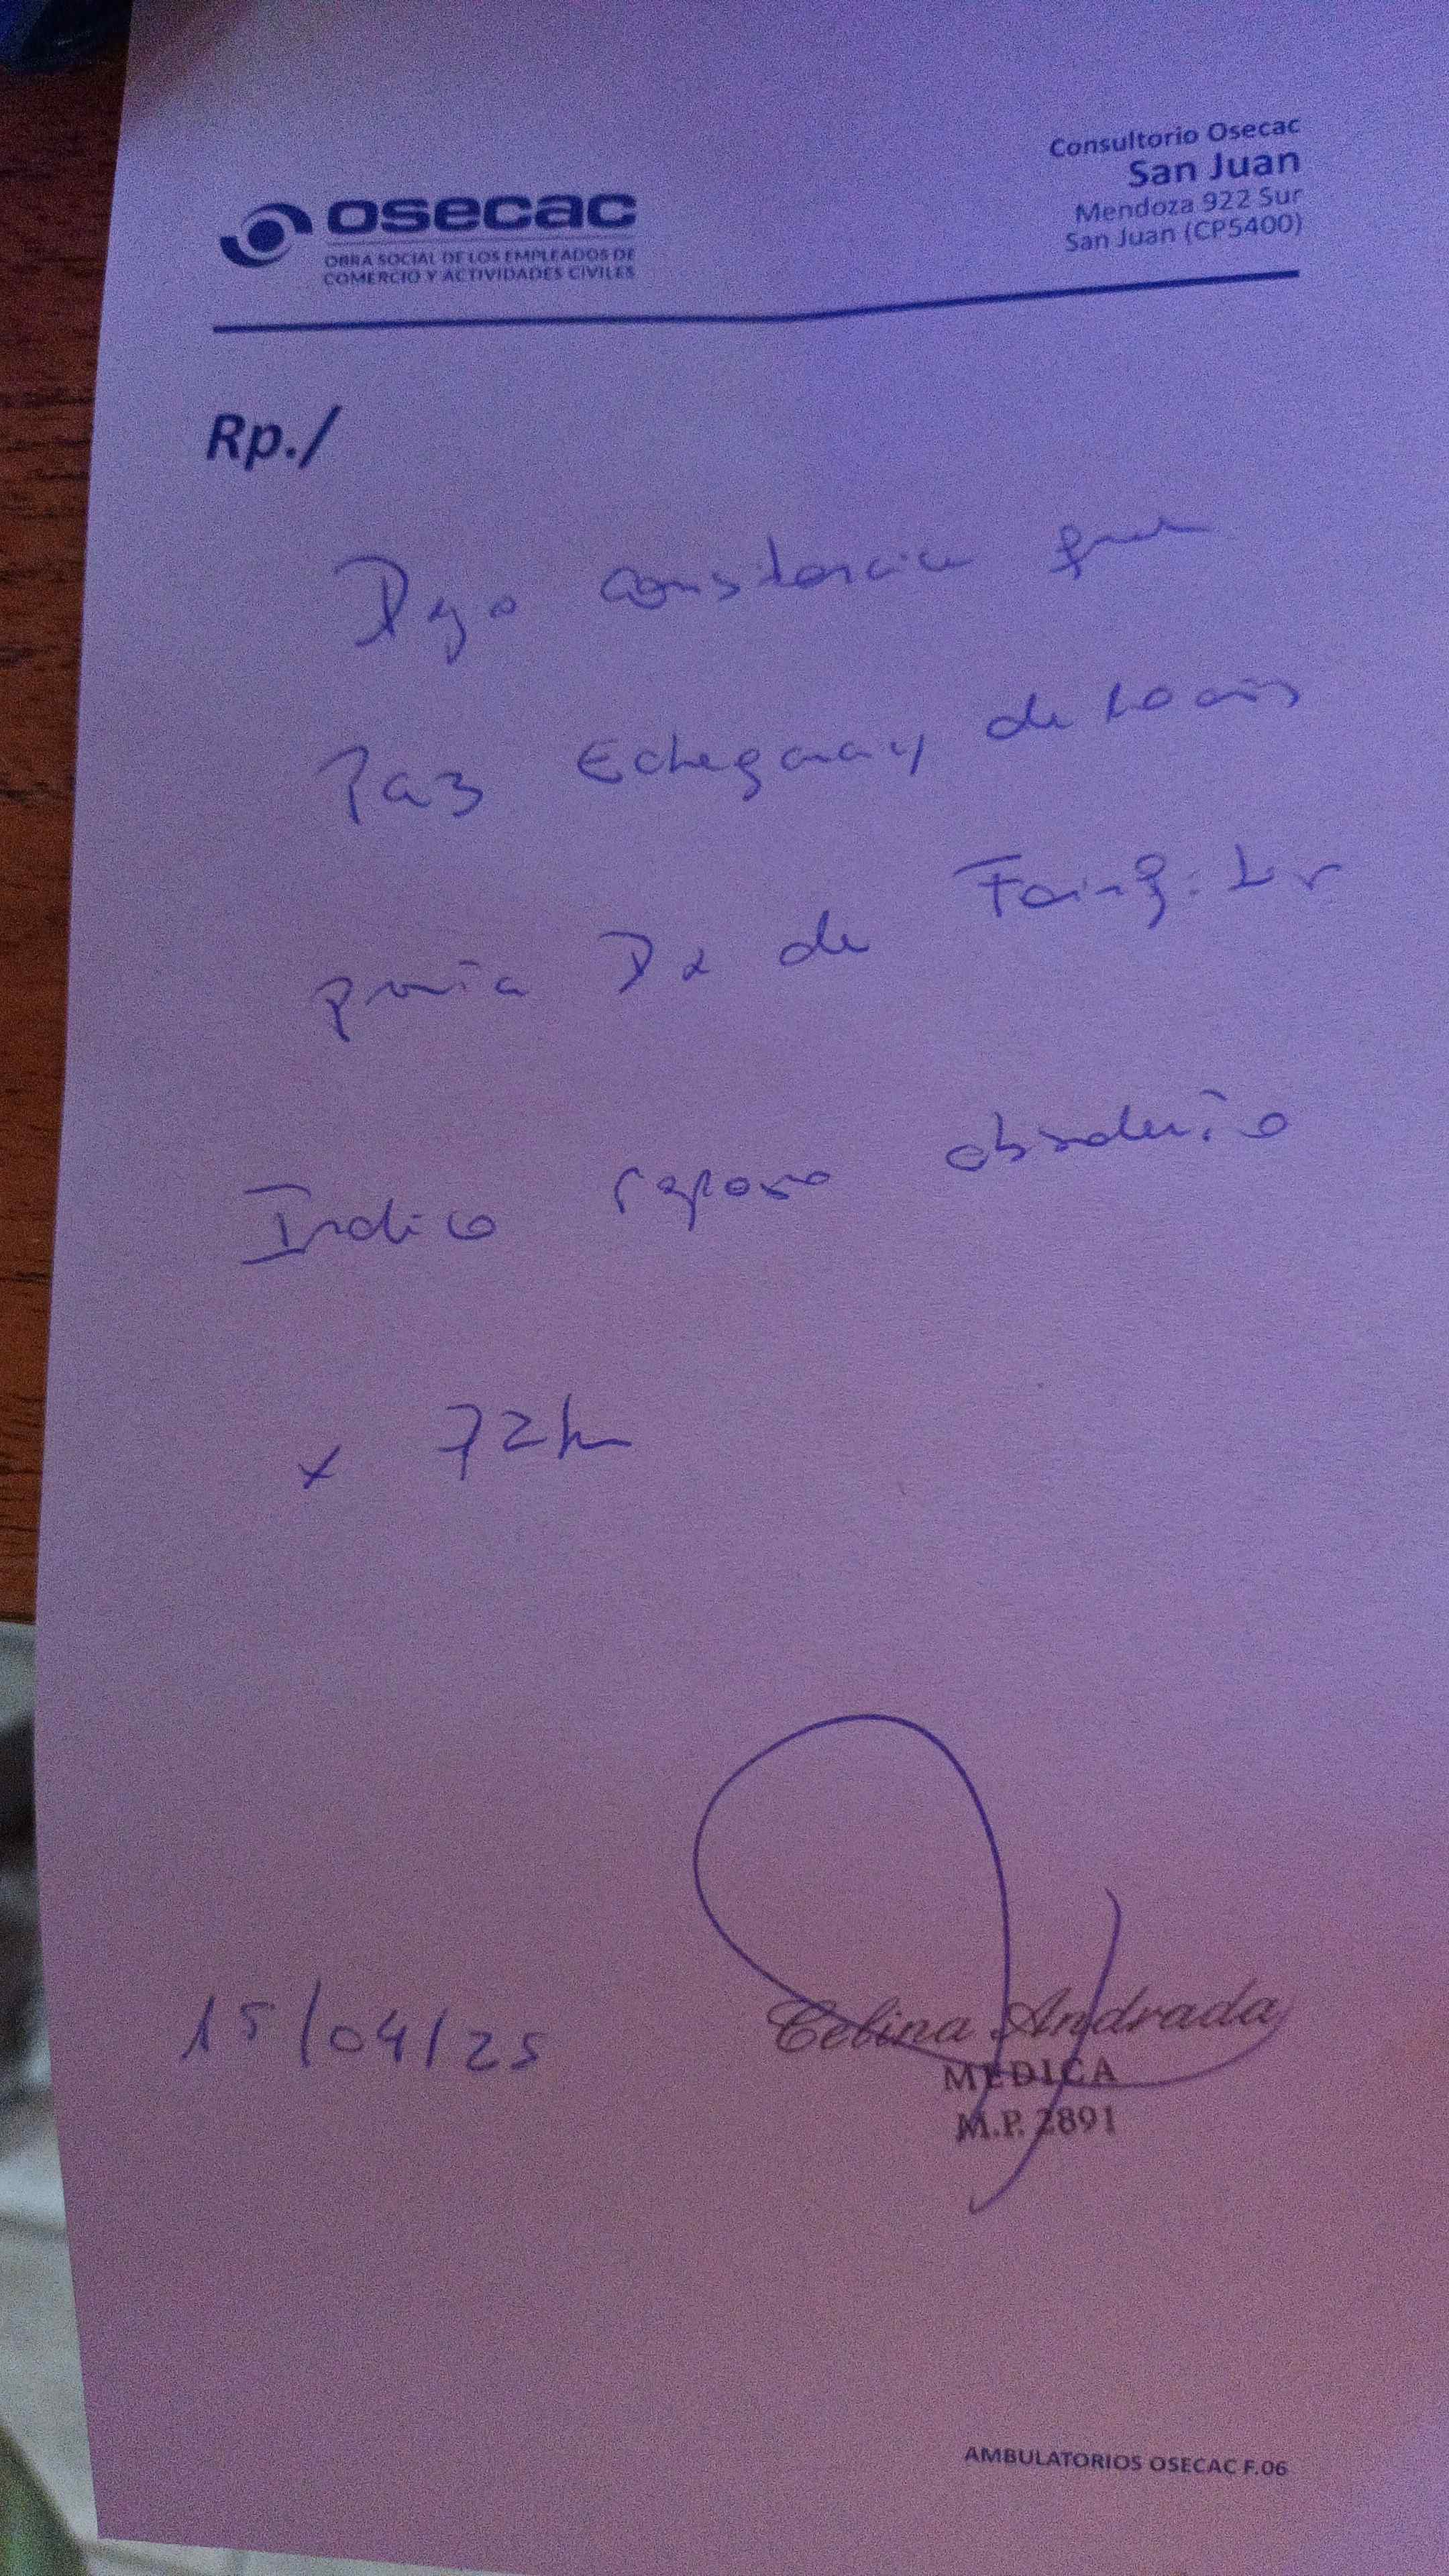 osecac
OBRA SOCIAL DE LOS EMPLEADOS DE
COMERCIO Y ACTIVIDADES CIVILES
Consultorio Osecac
San Juan
Mendoza 922 Sur
San Juan (CP5400)
Rp./
Dejo constancia que
Paz Echegaray de 20 años
Dx de Faringitis
Indico reposo absoluto
x 72h
15/04/25
Celina Andrada
MEDICA
M.P. 2891
AMBULATORIOS OSECAC F.06